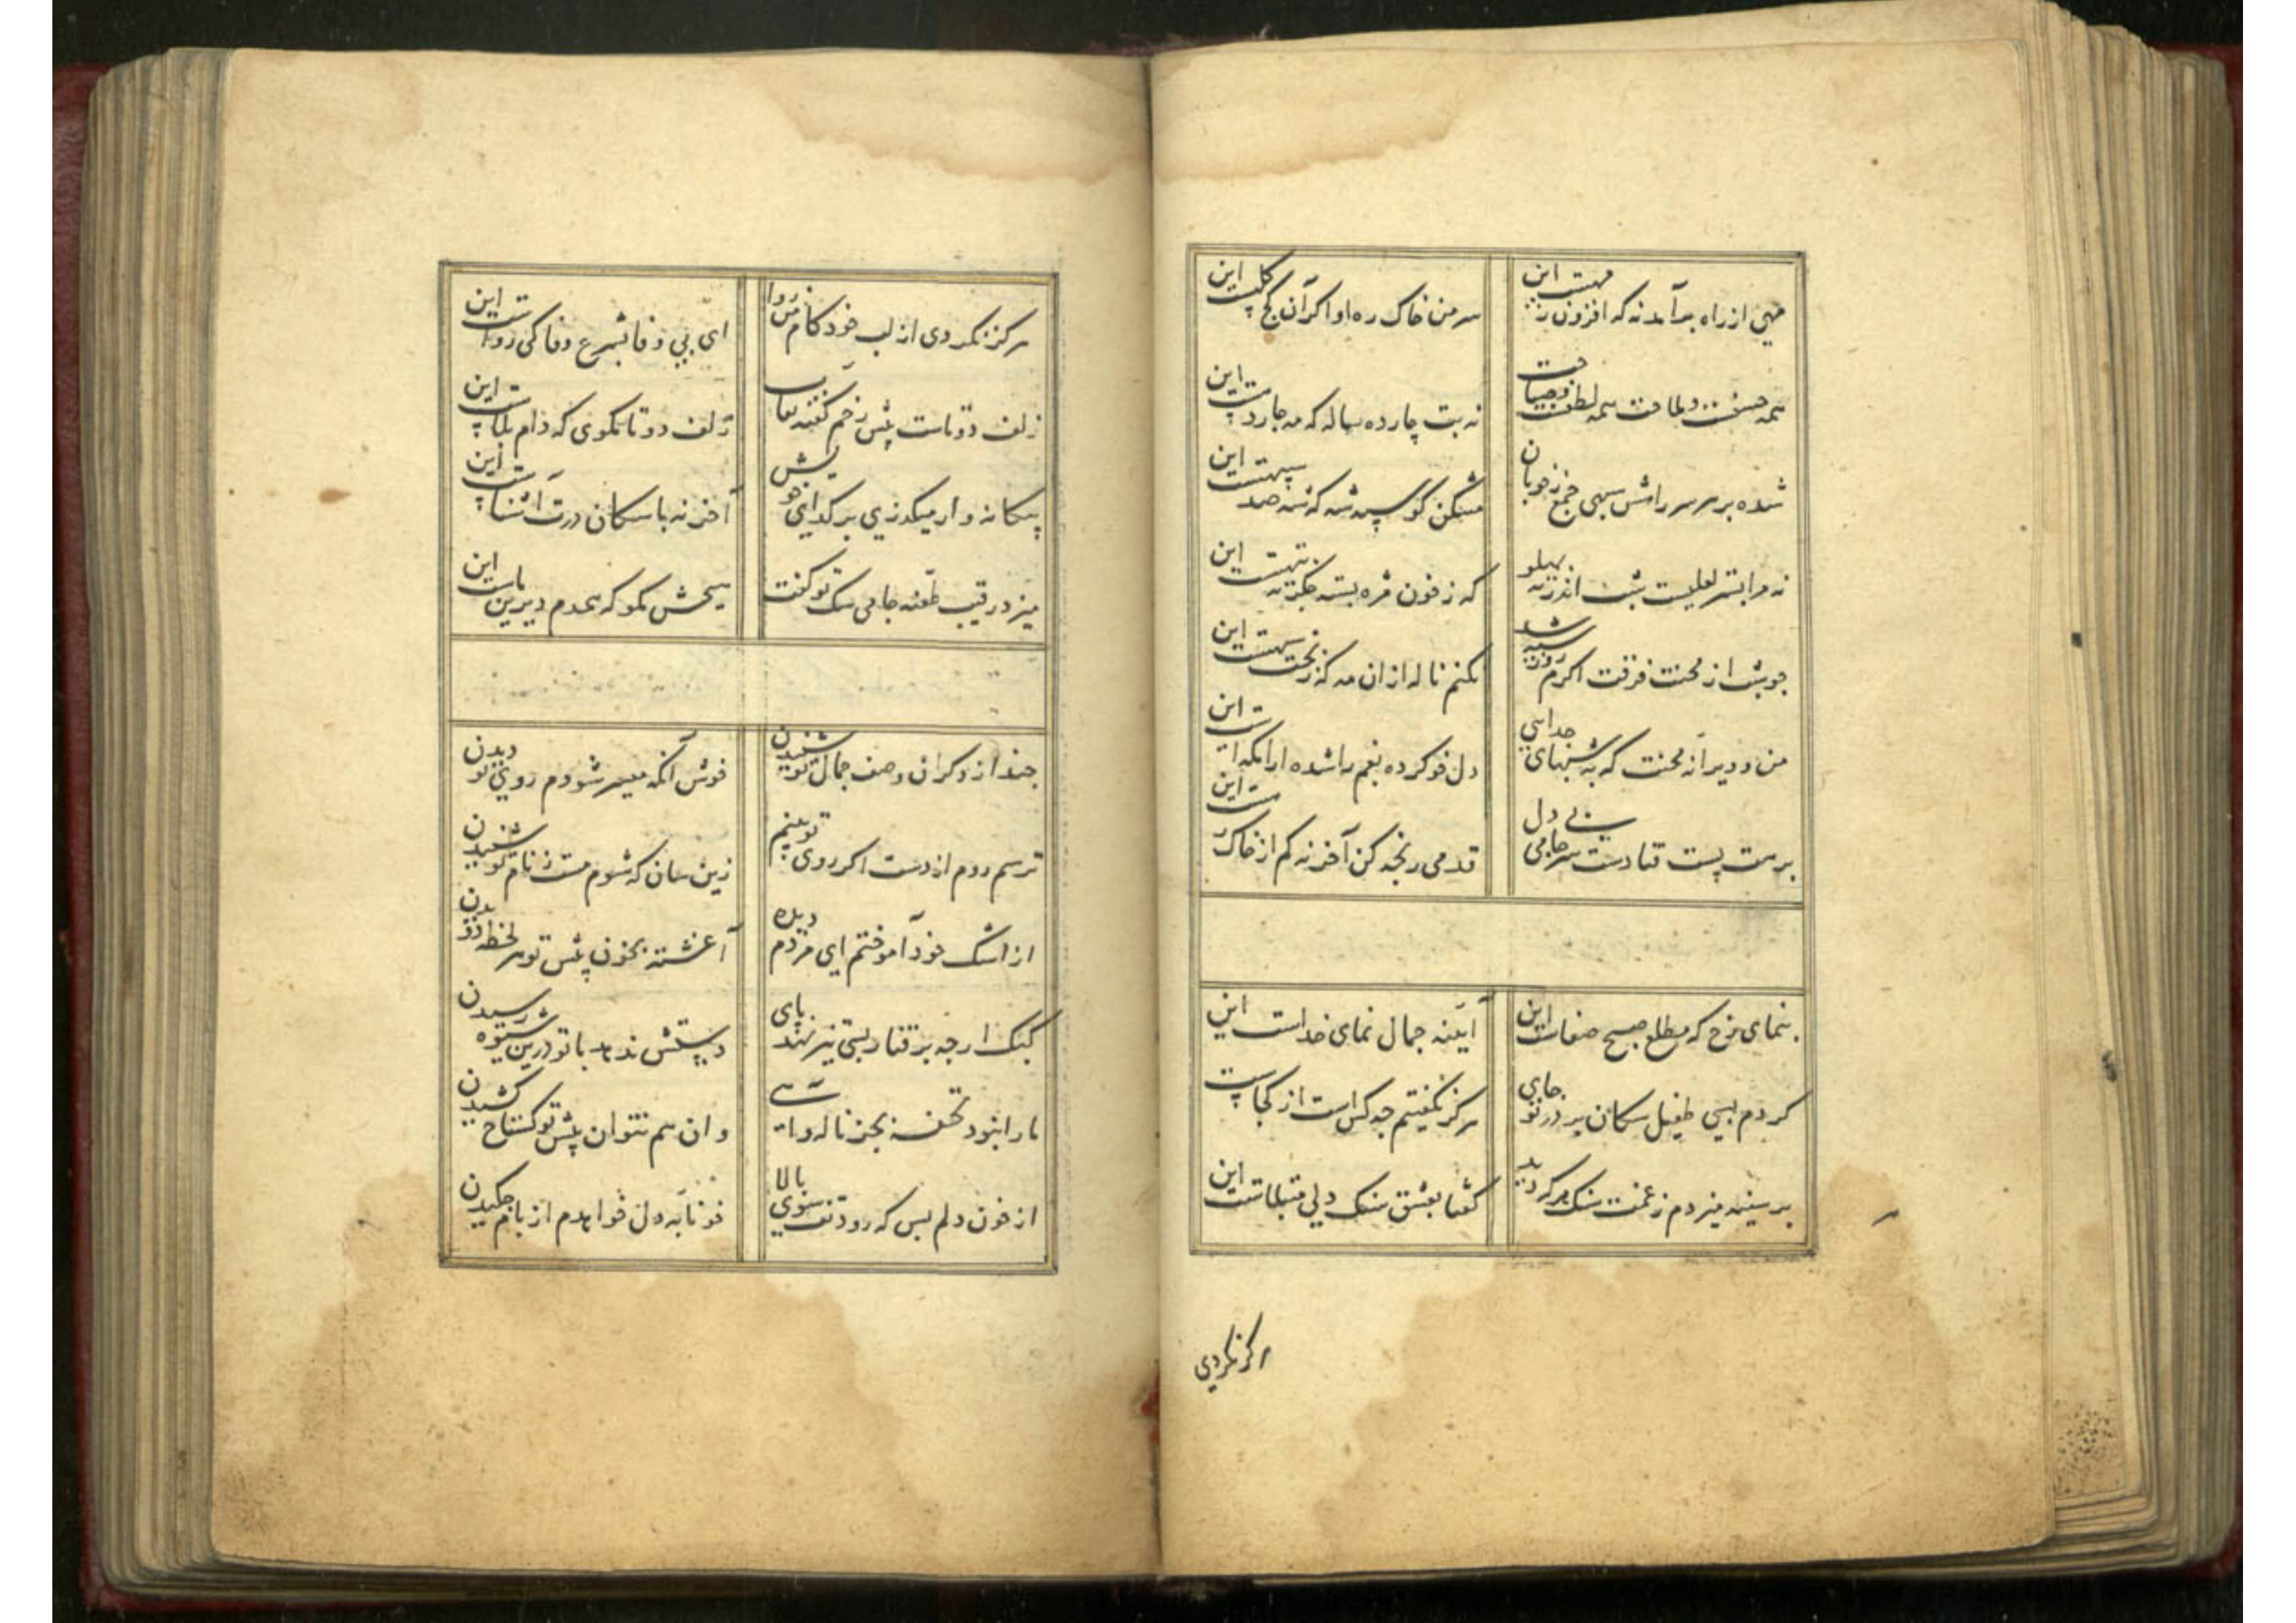 مهی از راه برآمد نه که افزون ز مهست این
سر من خاک ره او اگر آن کج کلهست این
همه حسنست و ملاحت همه لطفست و صباحت
نه بت چارده ساله که مه چاردهست این
شده بر هر سر راهش سپهی جمع ز خوبان
مشکن کو سپه شه که شه صد سپهست این
نه مرا بستر لعلیست بشب اندر ته پهلو
که ز خون مژه بسته جگر ته تهست این
جو شب از محنت فرقت اکرم روز سیه شد
نکنم ناله از ان مه که ز بخت سیهست این
من و ویرانه محنت که به شبهای جدایی
دل خو کرده بغم را شده آرامکهست این
برهت پست فتادست سر جامی بی دل
قدمی رنجه کن آخر نه کم از خاک رهست این
بنمای رخ که مطلع صبح صفاست این
آیینه جمال نمای خداست این
کردم بسی طفیل سکان بر در تو جای
هرکز نکفتیم چه کس است از کجاست این
بر سینه میزدم ز غمت سنک هر که دید
کفتا بعشق سنک دلی مبتلاست این
هرکز نکردی
هرکز نکردی از لب خود کام من روا
ای بی وفا بشرع وفا کی رواست این
زلف دوتاست پیش رخم کفته نقاب
زلف دو تا مکوی که دام بلاست این
بیکانه وار میکذری بر کدای خویش
آخر نه با سکان درت آشناست این
میزد رقیب طعنه جامی سک تو کفت
هیچش مکو که همدم دیرین ماست این
چند از دکران وصف جمال تو شنیدن
خوش آنکه میسر شودم روی تو دیدن
ترسم روم از دست اکر روی تو بینم
زین سان که شوم مست ز نام تو شنیدن
از اشک خود آموختم ای مردم دیده
آغشته بخون پیش تو هر لحظه دویدن
کبک ارچه برفتار بسی تیز نهد پای
دستش ندهد با تو درین شیوه رسیدن
ما را نبود تحفه بجز ناله و آهی
و ان هم نتوان پیش تو کستاخ کشیدن
از خون دلم بس که رود تف سوی بالا
خونابه دل خواهدم از بام چکیدن